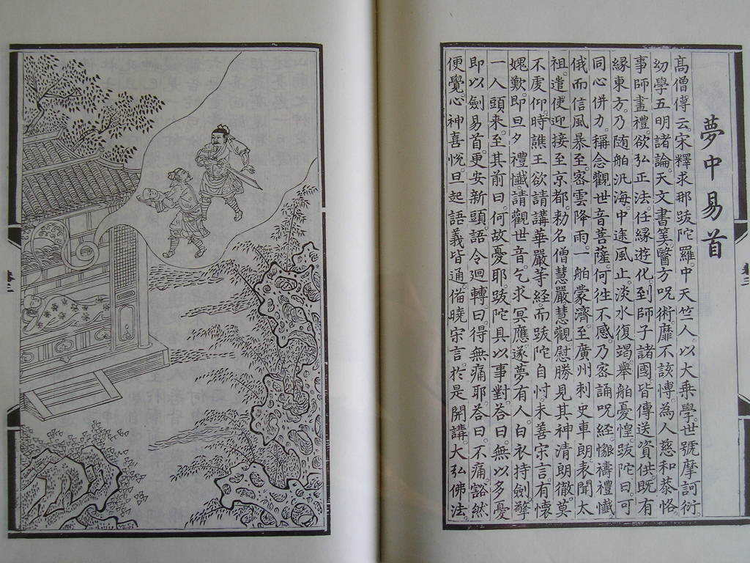 夢中易首
高僧傳云宋釋求那跋陀羅中天竺人以大乗學世號摩訶衍
幼學五明諸論天文書筭醫方呪術靡不該博為人慈和恭恪
事師盡禮欲弘正法任緣遊化到師子諸國皆傳送資供既有
緣東方乃隨舶汎海中途風止淡水復竭舉舶憂惶跋陀曰可
同心併力稱念觀世音菩薩何徃不感乃宻誦呪經懺禱禮懺
俄而信風暴至宻雲降雨一舶蒙濟至廣州刺史車朗表聞太
祖遣使迎接至京都勅名僧慧嚴慧觀慰勝見其神清朗徹莫
不虔仰時譙王欲請講華嚴等經而跋陀自忖未善宋言有懷
媿歎即旦夕禮懺請觀世音乞求冥應遂夢有人白衣持劍擎
一人頭來至其前曰何故憂耶跋陀具以事對荅曰無以多憂
即以劍易首更安新頭語令廻轉曰得無痛耶荅曰不痛豁然
便覺心神喜悅旦起語義皆通偹曉宋言扵是開講大弘佛法